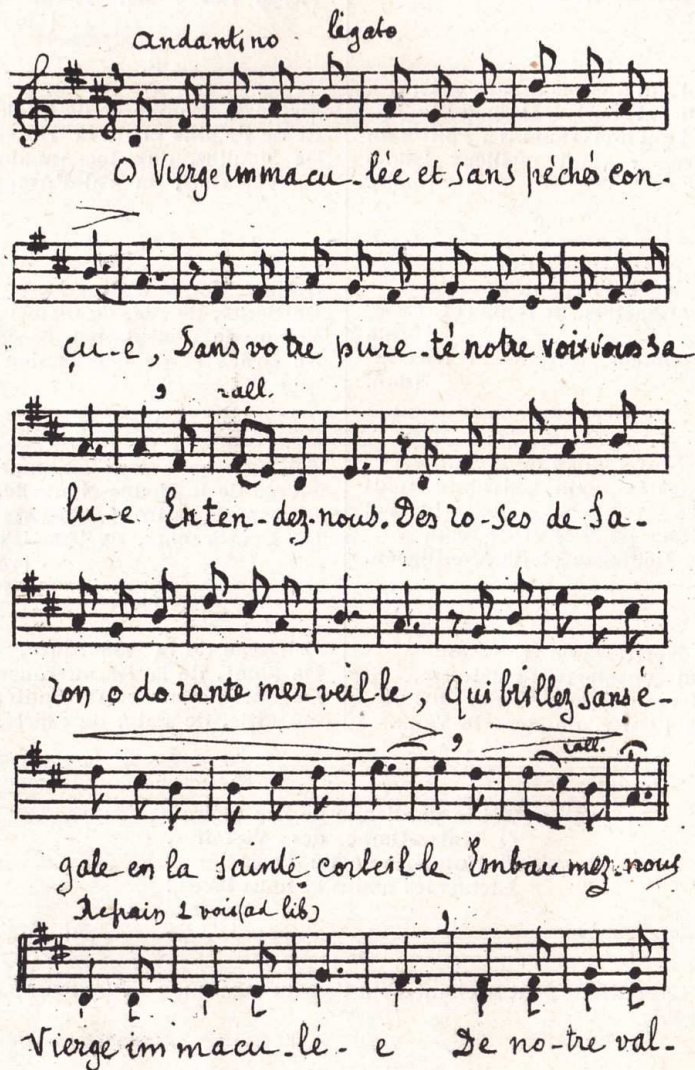 Andantino legato
O Vierge immacu-lée et sans péché con-
çu-e, Dans votre pure-té notre voix vous sa
rall.
lu-e Enten-dez-nous. Des ro-ses de Sa-
ron o do rante mer veil-le, Qui brillez sans e-
rall.
gale en la sainte corbeil-le Embau mez-nous
Refrain 2 voix (ad lib)
Vierge im macu-lé-e De no-tre val-